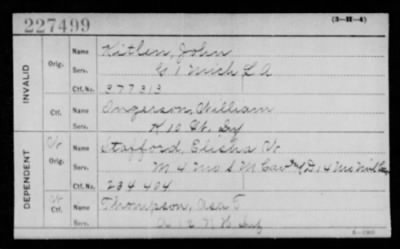 227499
(3-H-4)
INVALID
Orig.
Name Kitlen, John
Serv. G 1 Mich L A
Ctf. No. 377313
Ctf.
Name Ingerson, William
Serv. K 10 Vt. Inf
DEPENDENT
Orig.
Name Stafford, Elisha W
Serv. M 4 Mo S M Cav & D 14 Mo Mil Cav
Ctf. No. 234404
Ctf.
Name Thompson, Asa T
Serv. 12 N H Inf